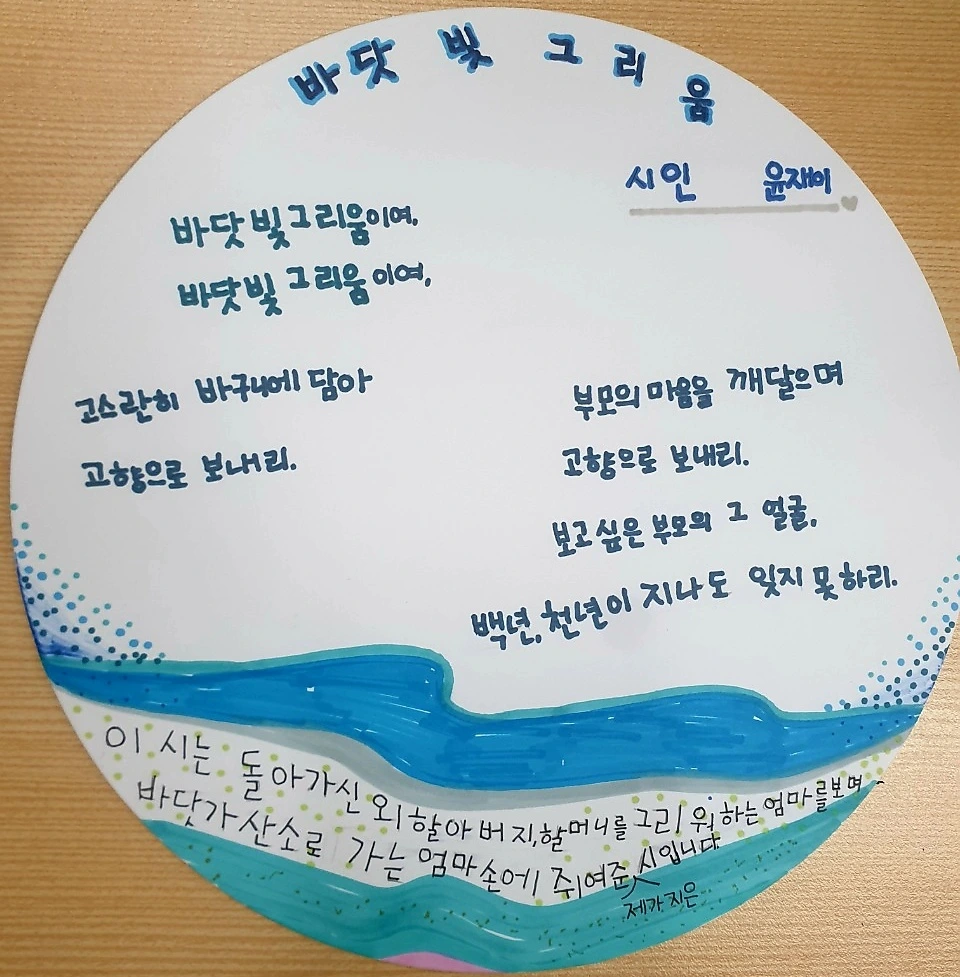 바닷빛 그리움
시인 윤재이
바닷빛 그리움이여,
바닷빛 그리움이여,
고스란히 바구니에 담아
고향으로 보내리.
부모의 마음을 깨달으며
고향으로 보내리.
보고싶은 부모의 그 얼굴,
백년, 천년이 지나도 잊지 못하리.
이 시는 돌아가신 외할아버지,할머니를 그리워하는 엄마를보며
바닷가산소로 가는 엄마손에 쥐여준 시입니다
제가 지은